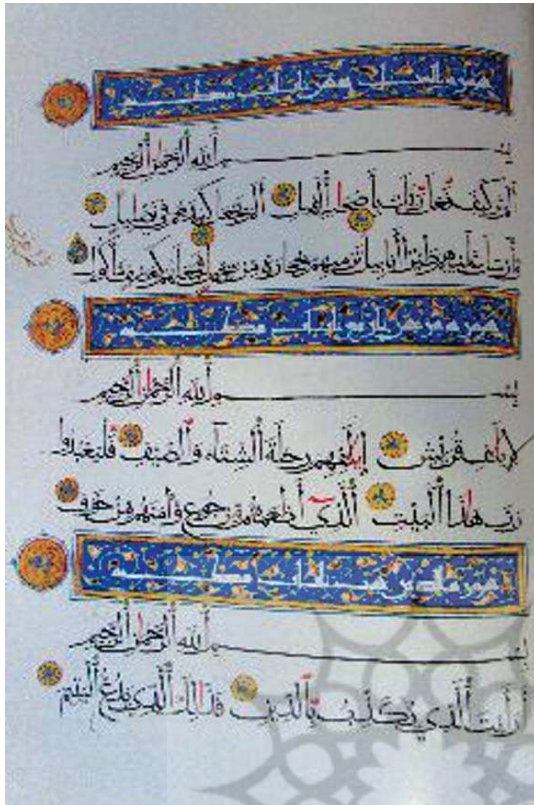 سورة الفيل وهي خمس آيات مكية
بسم الله الرحمن الرحيم
ألم تر كيف فعل ربك بأصحاب الفيل ألم يجعل كيدهم في تضليل
وأرسل عليهم طيرا أبابيل ترميهم بحجارة من سجيل فجعلهم كعصف مأكول
سورة قريش أربع آيات مكية
بسم الله الرحمن الرحيم
لإيلاف قريش إيلافهم رحلة الشتاء والصيف فليعبدوا
رب هذا البيت الذي أطعمهم من جوع وآمنهم من خوف
سورة آيات
بسم الله الرحمن الرحيم
أرأيت الذي يكذب بالدين فذلك الذي يدع اليتيم